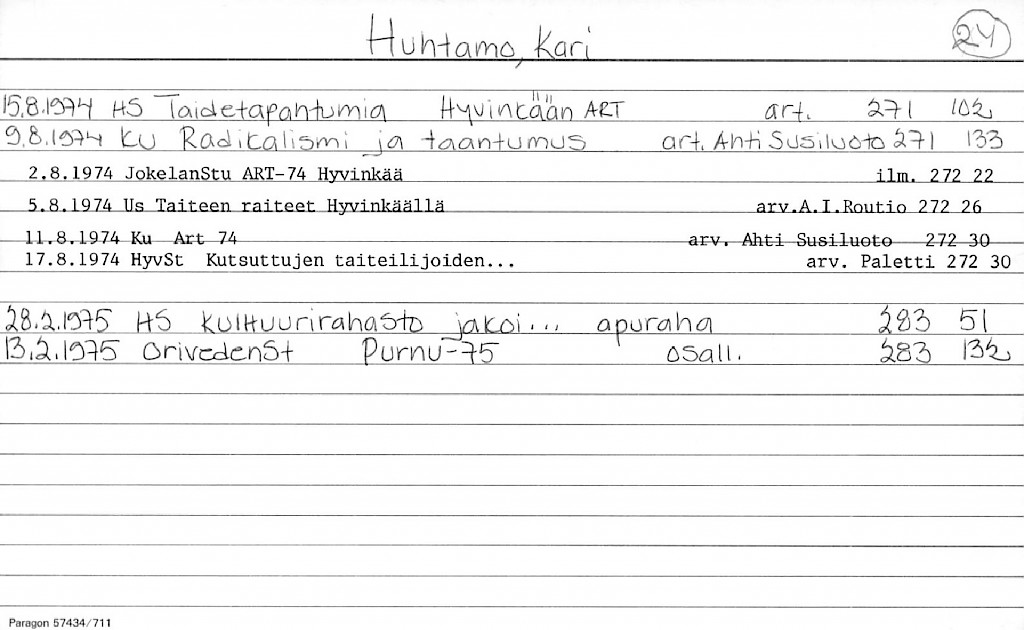 Huhtamo, Kari 24
15.8.1974 HS Taidetapahtumia Hyvinkään ART art. 271 102
9.8.1974 KU Radikalismi ja taantumus art. Ahti Susiluoto 271 133
2.8.1974 JokelanStu ART-74 Hyvinkää ilm. 272 22
5.8.1974 Us Taiteen raiteet Hyvinkäällä arv.A.I.Routio 272 26
11.8.1974 Ku Art 74 arv. Ahti Susiluoto 272 30
17.8.1974 HyvSt Kutsuttujen taiteilijoiden... arv. Paletti 272 30
28.2.1975 HS Kulttuurirahasto jakoi... apuraha 283 51
13.2.1975 OrivedenSt Purnu-75 osall. 283 132
Paragon 57434/711